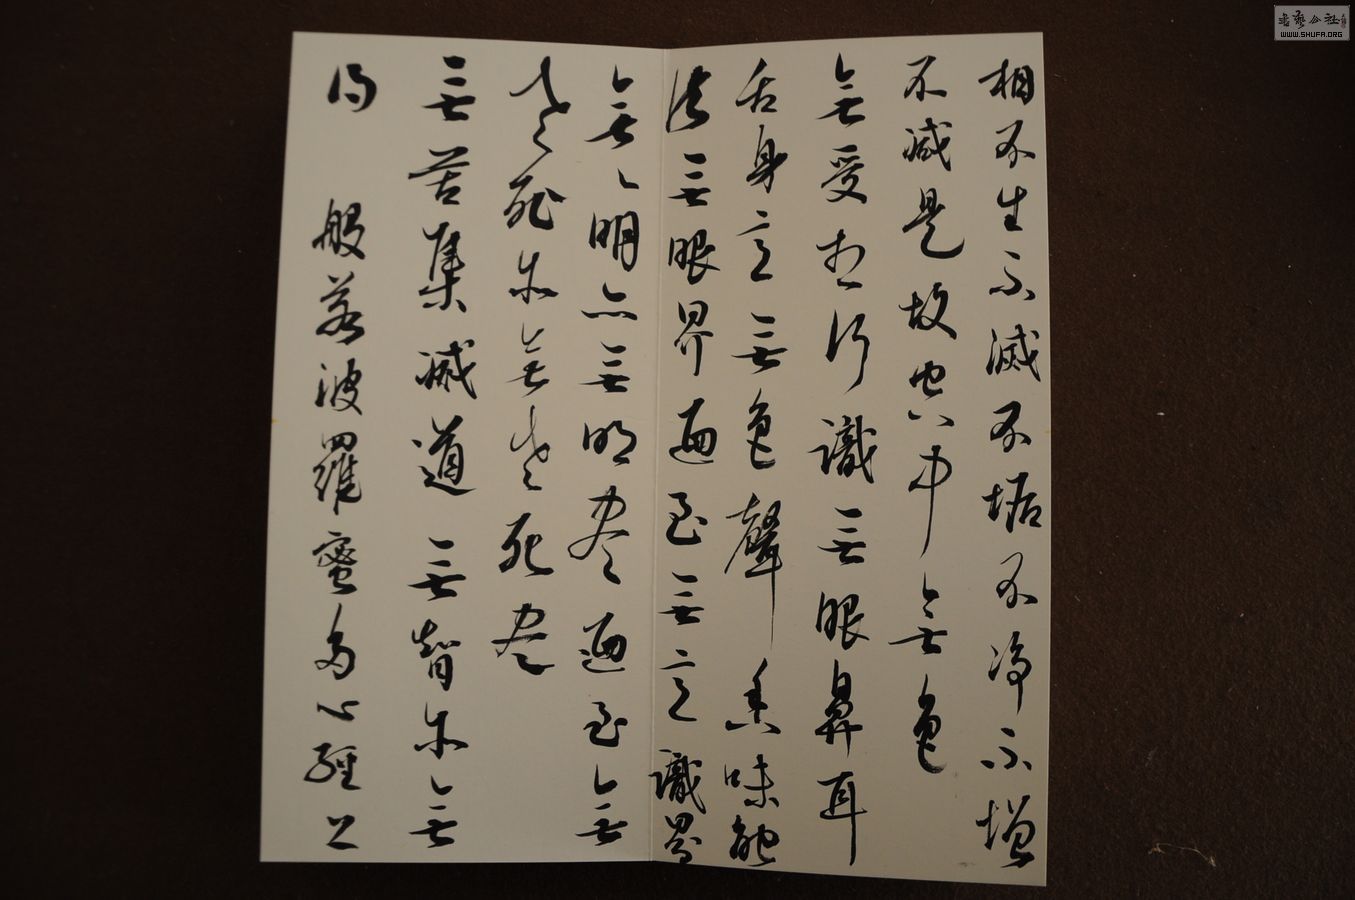 相不生不滅不垢不淨不增
不減是故空中無色
無受想行識無眼鼻耳
舌身意無色聲香味觸
法無眼界乃至無意識界
無無明亦無明盡乃至無
老死亦無老死盡
無苦集滅道無智亦無
得 般若波羅蜜多心經
WWW.SHUFA.ORG